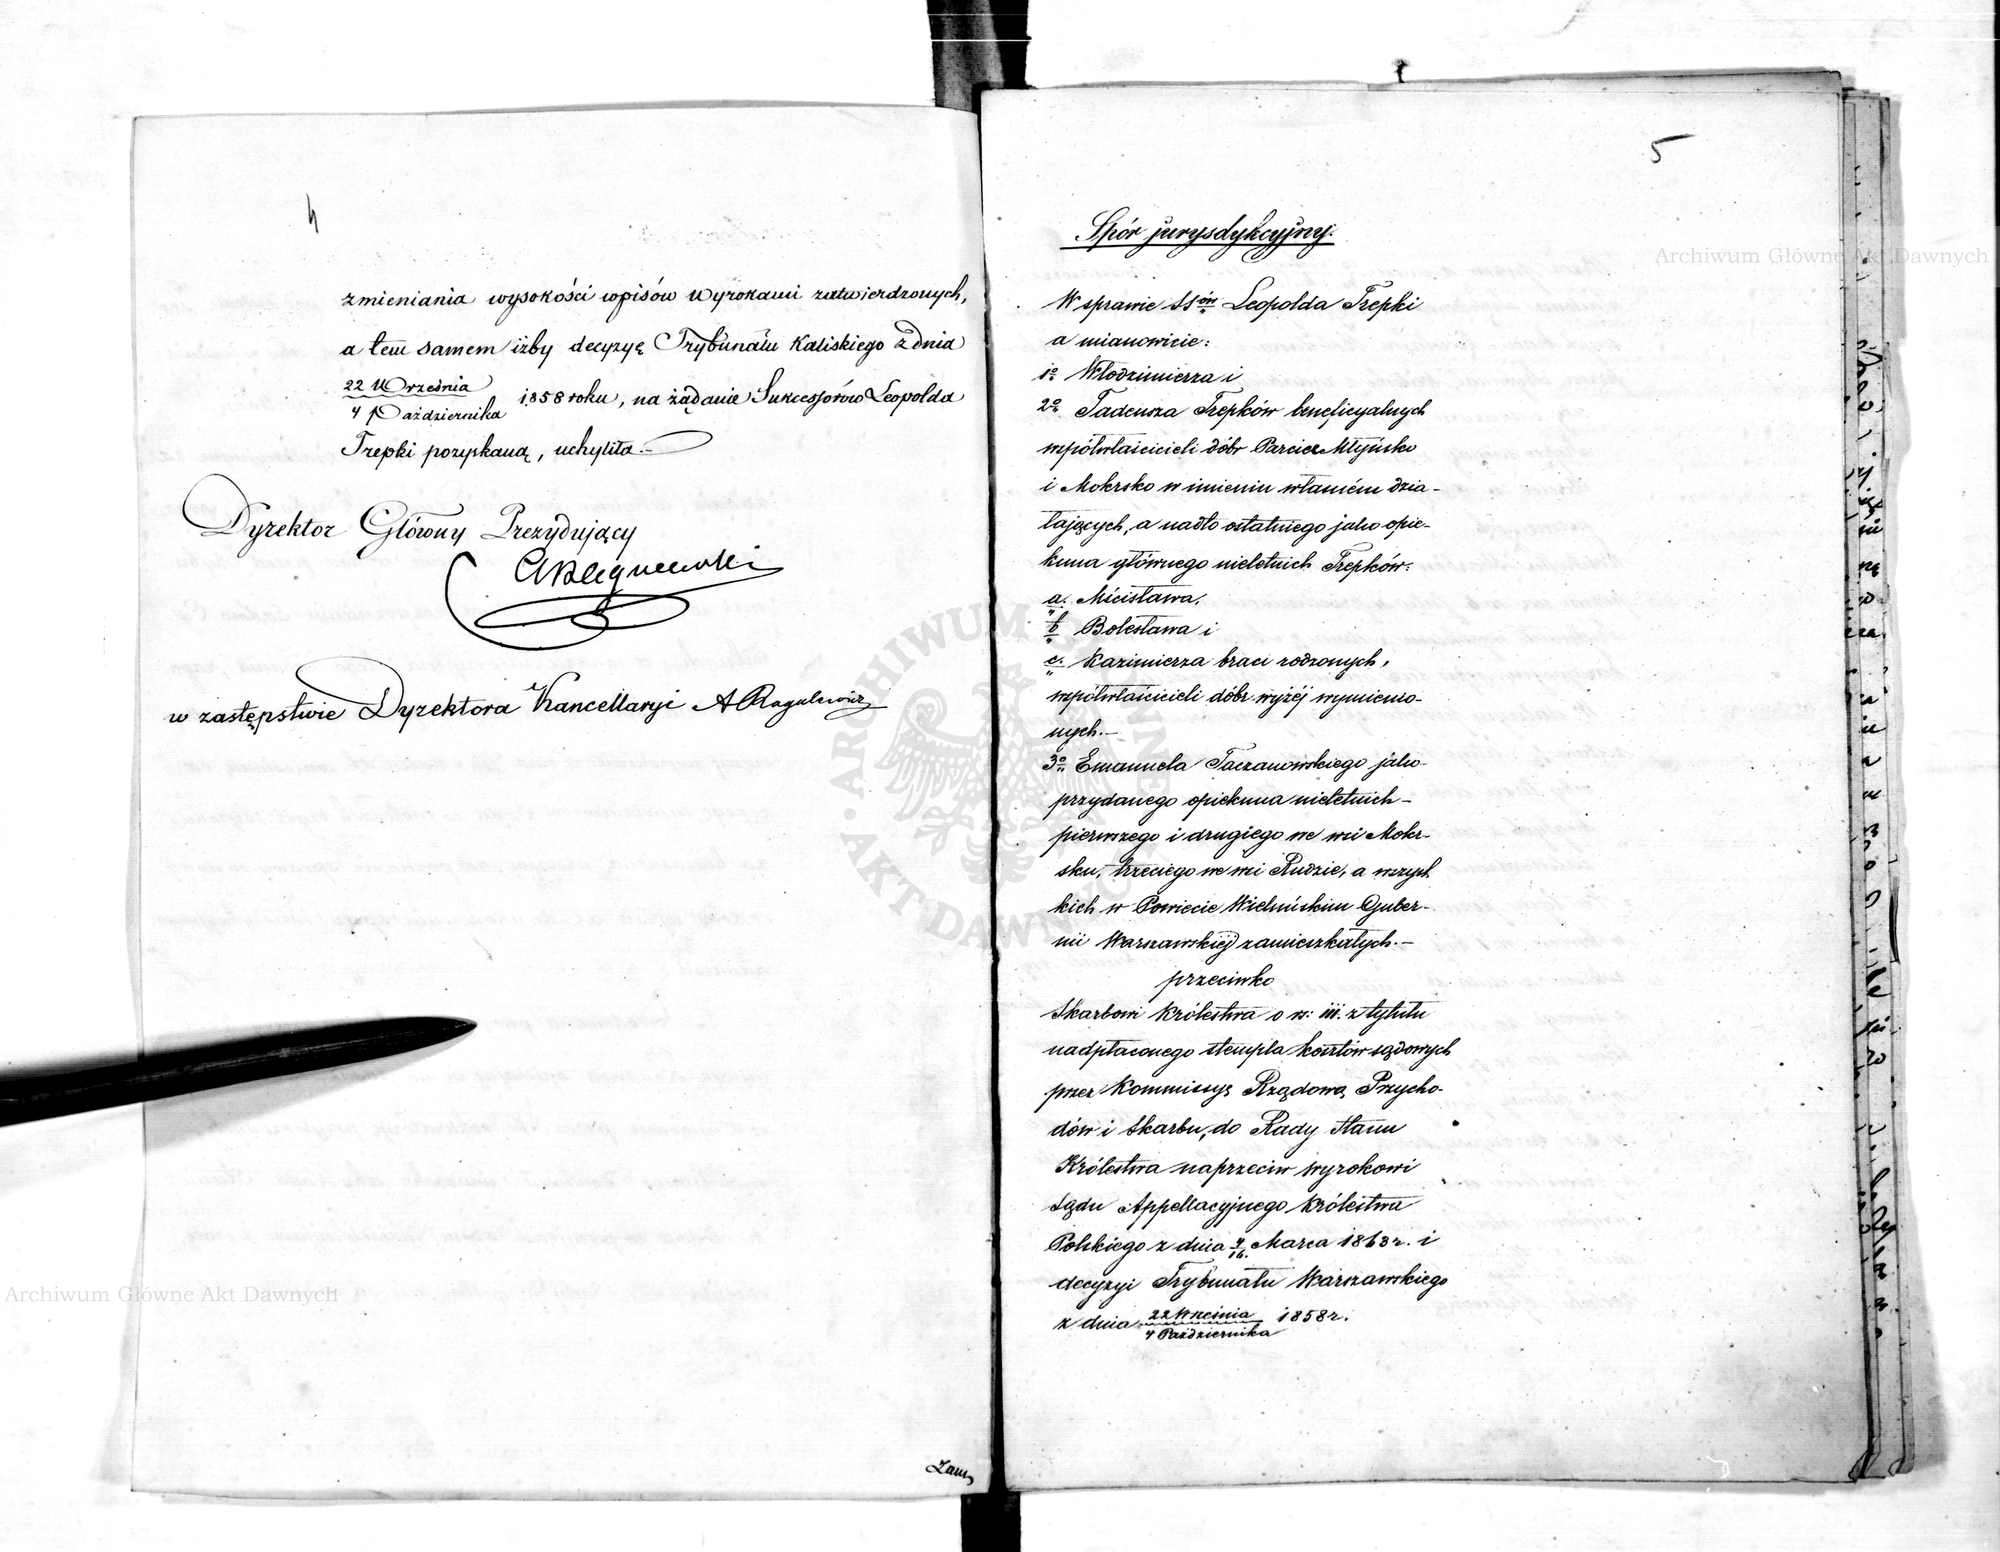 4
zmieniania wysokości wpisów Wyrokami zatwierdzonych,
a tem samem iżby decyzyę Trybunału Kaliskiego z dnia
22 Września
4 Października 1858 roku, na żądanie Sukcessorów Leopolda
Trepki pozyskaną, uchyliła.
Dyrektor Główny Prezydujący
w zastępstwie Dyrektora Kancellaryi A Rogulewicz
5
Spór jurysdykcyjny.
W sprawie SSów Leopolda Trepki
a mianowicie:
1o Włodzimierza i
2o Tadeusza Trepków beneficyalnych
współwłaścicieli dóbr Parcice Młyńsko
i Mokrsko w imieniu własném dzia-
łających, a nadto ostatniego jako opie-
kuna głównego nieletnich Trepków:
a. Mścisława,
b Bolesława i
c. Kazimierza braci rodzonych,
współwłaścicieli dóbr wyżéj wymienio-
nych.—
3o Emanuela Taczanowskiego jako
przydanego opiekuna nieletnich –
pierwszego i drugiego we wsi Mokr-
sku, trzeciego we wsi Rudzie, a wszyst
kich w Powiecie Wieluńskim Guber-
nii Warszawskiéj zamieszkałych.—
przeciwko
Skarbowi Królestwa o rs: iii. z tytułu
nadpłaconego stempla kosztów sądowych
przez Kommissyę Rządową Przycho-
dów i Skarbu, do Rady Stanu
Królestwa naprzeciw wyrokowi
Sądu Appellacyjnego Królestwa
Polskiego z dnia 4/16. Marca 1863 r. i
decyzyi Trybunału Warszawskiego
z dnia 22 Września 1858 r.
4 Października
Archiwum Główne Akt Dawnych
Archiwum Główne Akt Dawnych
ARCHIWUM
AKT DAWNYCH